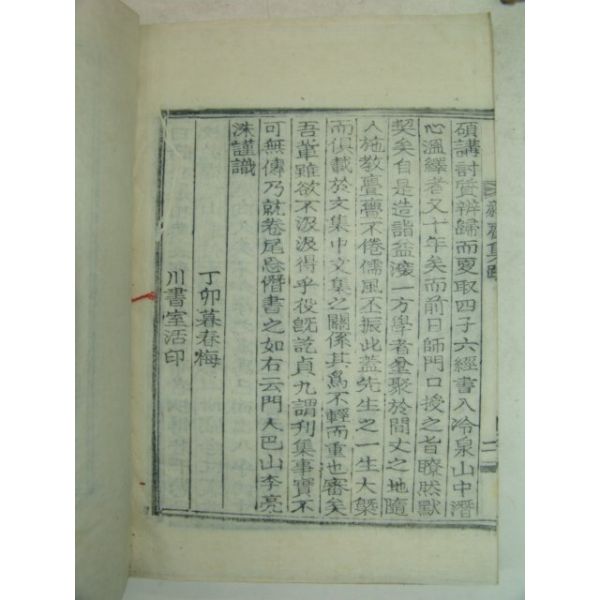 碩講討質辨歸而更取四子六經書入冷泉山中潛
心溫繹者又十年矣而前日師門口授之旨瞭然默
契矣自是造詣益深一方學者坌聚於間丈之地隨
人施敎亹亹不倦儒風丕振此蓋先生之一生大槩
而俱載於文集中文集之關係其爲不輕而重也審矣
吾輩雖欲不汲汲得乎役旣訖貞九謂刊集事實不
可無傳乃就卷尾忘僭書之如右云門人巴山李亮
洙謹識
丁卯暮春梅
川書室活印
集
二